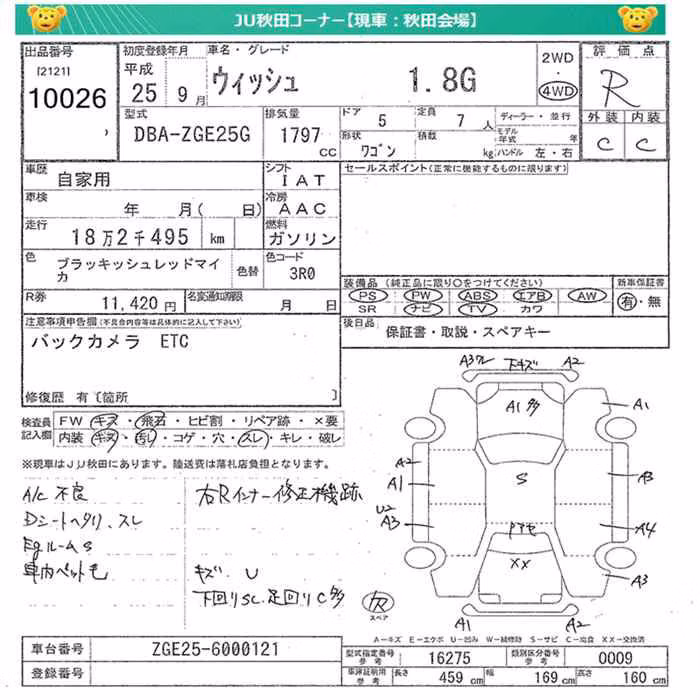 JU秋田コーナー【現車：秋田会場】
出品番号
[2121]
10026
初度登録年月
平成
25 9月
車名・グレード
ウィッシュ 1.8G
2WD
4WD
評価点
R
外装 内装
C C
型式
DBA-ZGE25G
排気量
1797 CC
ドア 5
定員 7人
ディーラー・並行
形状 ワゴン
積載 kg
モデル年式 年
ハンドル 左・右
車歴
自家用
シフト
IAT
セールスポイント(正常に機能するものに限ります)
車検
年 月( 日)
冷房
AAC
走行
18万2千495 km
燃料
ガソリン
色
ブラッキッシュレッドマイカ
色替
色コード
3R0
装備品(純正品に限り○をつけてください)
新車保証書
PS PW ABS エアB AW
有・無
SR ナビ TV カワ
R券
11,420円
名変通知期限
月 日
後日品
保証書・取説・スペアキー
注意事項申告欄(不具合内容等は具体的に記入して下さい)
バックカメラ ETC
修復歴 有〔箇所 〕
検査員記入欄
FW キズ・飛石・ヒビ割・リペア跡・×要
内装 キズ・汚し・コゲ・穴・スレ・キレ・破レ
※現車はJU秋田にあります。陸送費は落札店負担となります。
A/C 不良
Dシートヘタリ、スレ
EgルームS
車内ペット毛
右Rインナー修正機跡
キズ、U
下回りSC、足回りC多
A3ワレ 下キズ A2
A1多
A1
A2
A1
S
A3
U2
A3
A4
XX
A3
A1 A2
スペア
A－キズ E－エクボ U－凹み W－補修跡 S－サビ C－腐食 XX－交換済
車台番号
ZGE25-6000121
型式指定番号 参考
16275
類別区分番号 参考
0009
登録番号
車庫証明用 参考
長さ 459 cm
幅 169 cm
高さ 160 cm